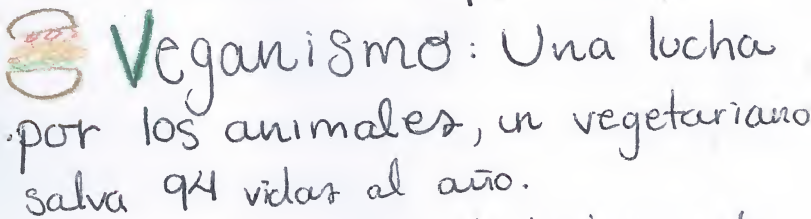 Veganismo: Una lucha
por los animales, un vegetariano
salva 94 vidas al año.